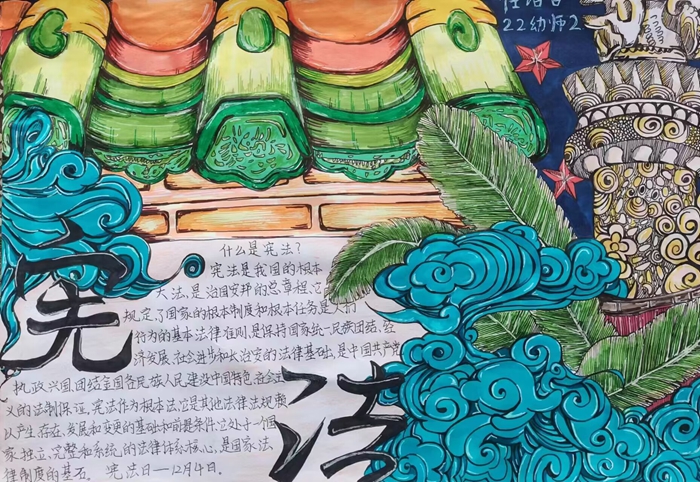 22幼师2
宪法
什么是宪法?
宪法是我国的根本
大法,是治国安邦的总章程,它
规定了国家的根本制度和根本任务是人们
行为的基本法律准则,是保持国家统一,民族团结,经
济发展,社会进步和长治安的法律基础,是中国共产党
执政兴国,团结全国各民族人民建设中国特色社会主
义的法制保证,宪法作为根本法,它是其他法律法规赖
以产生,存在,发展和变更的基础和前提条件,它处于一个国
家独立,完整和系统的法律体系核心,是国家法
律制度的基石。 宪法日—12月4日。